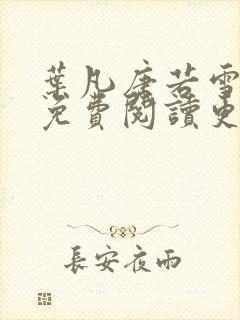 葉凡唐若雪
免費閱讀更
長安夜雨